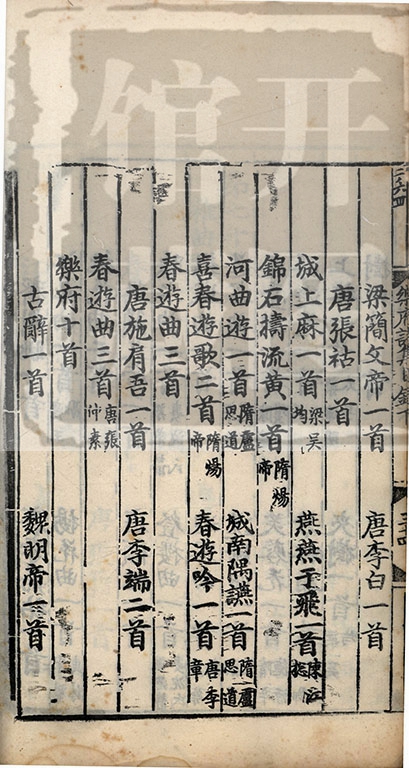 开馆
樂府詩集目錄下
梁簡文帝一首 唐李白一首
唐張祜一首
城上麻一首 梁吳均 燕燕于飛一首 陳江總
錦石擣流黃一首 隋煬帝
河曲遊一首 隋盧思道 城南隅讌一首 隋盧思道
喜春遊歌二首 隋煬帝 春遊吟一首 唐李章
春遊曲三首
唐施肩吾一首 唐李端二首
春遊曲三首 唐張仲素
樂府十首
古辭一首 魏明帝首